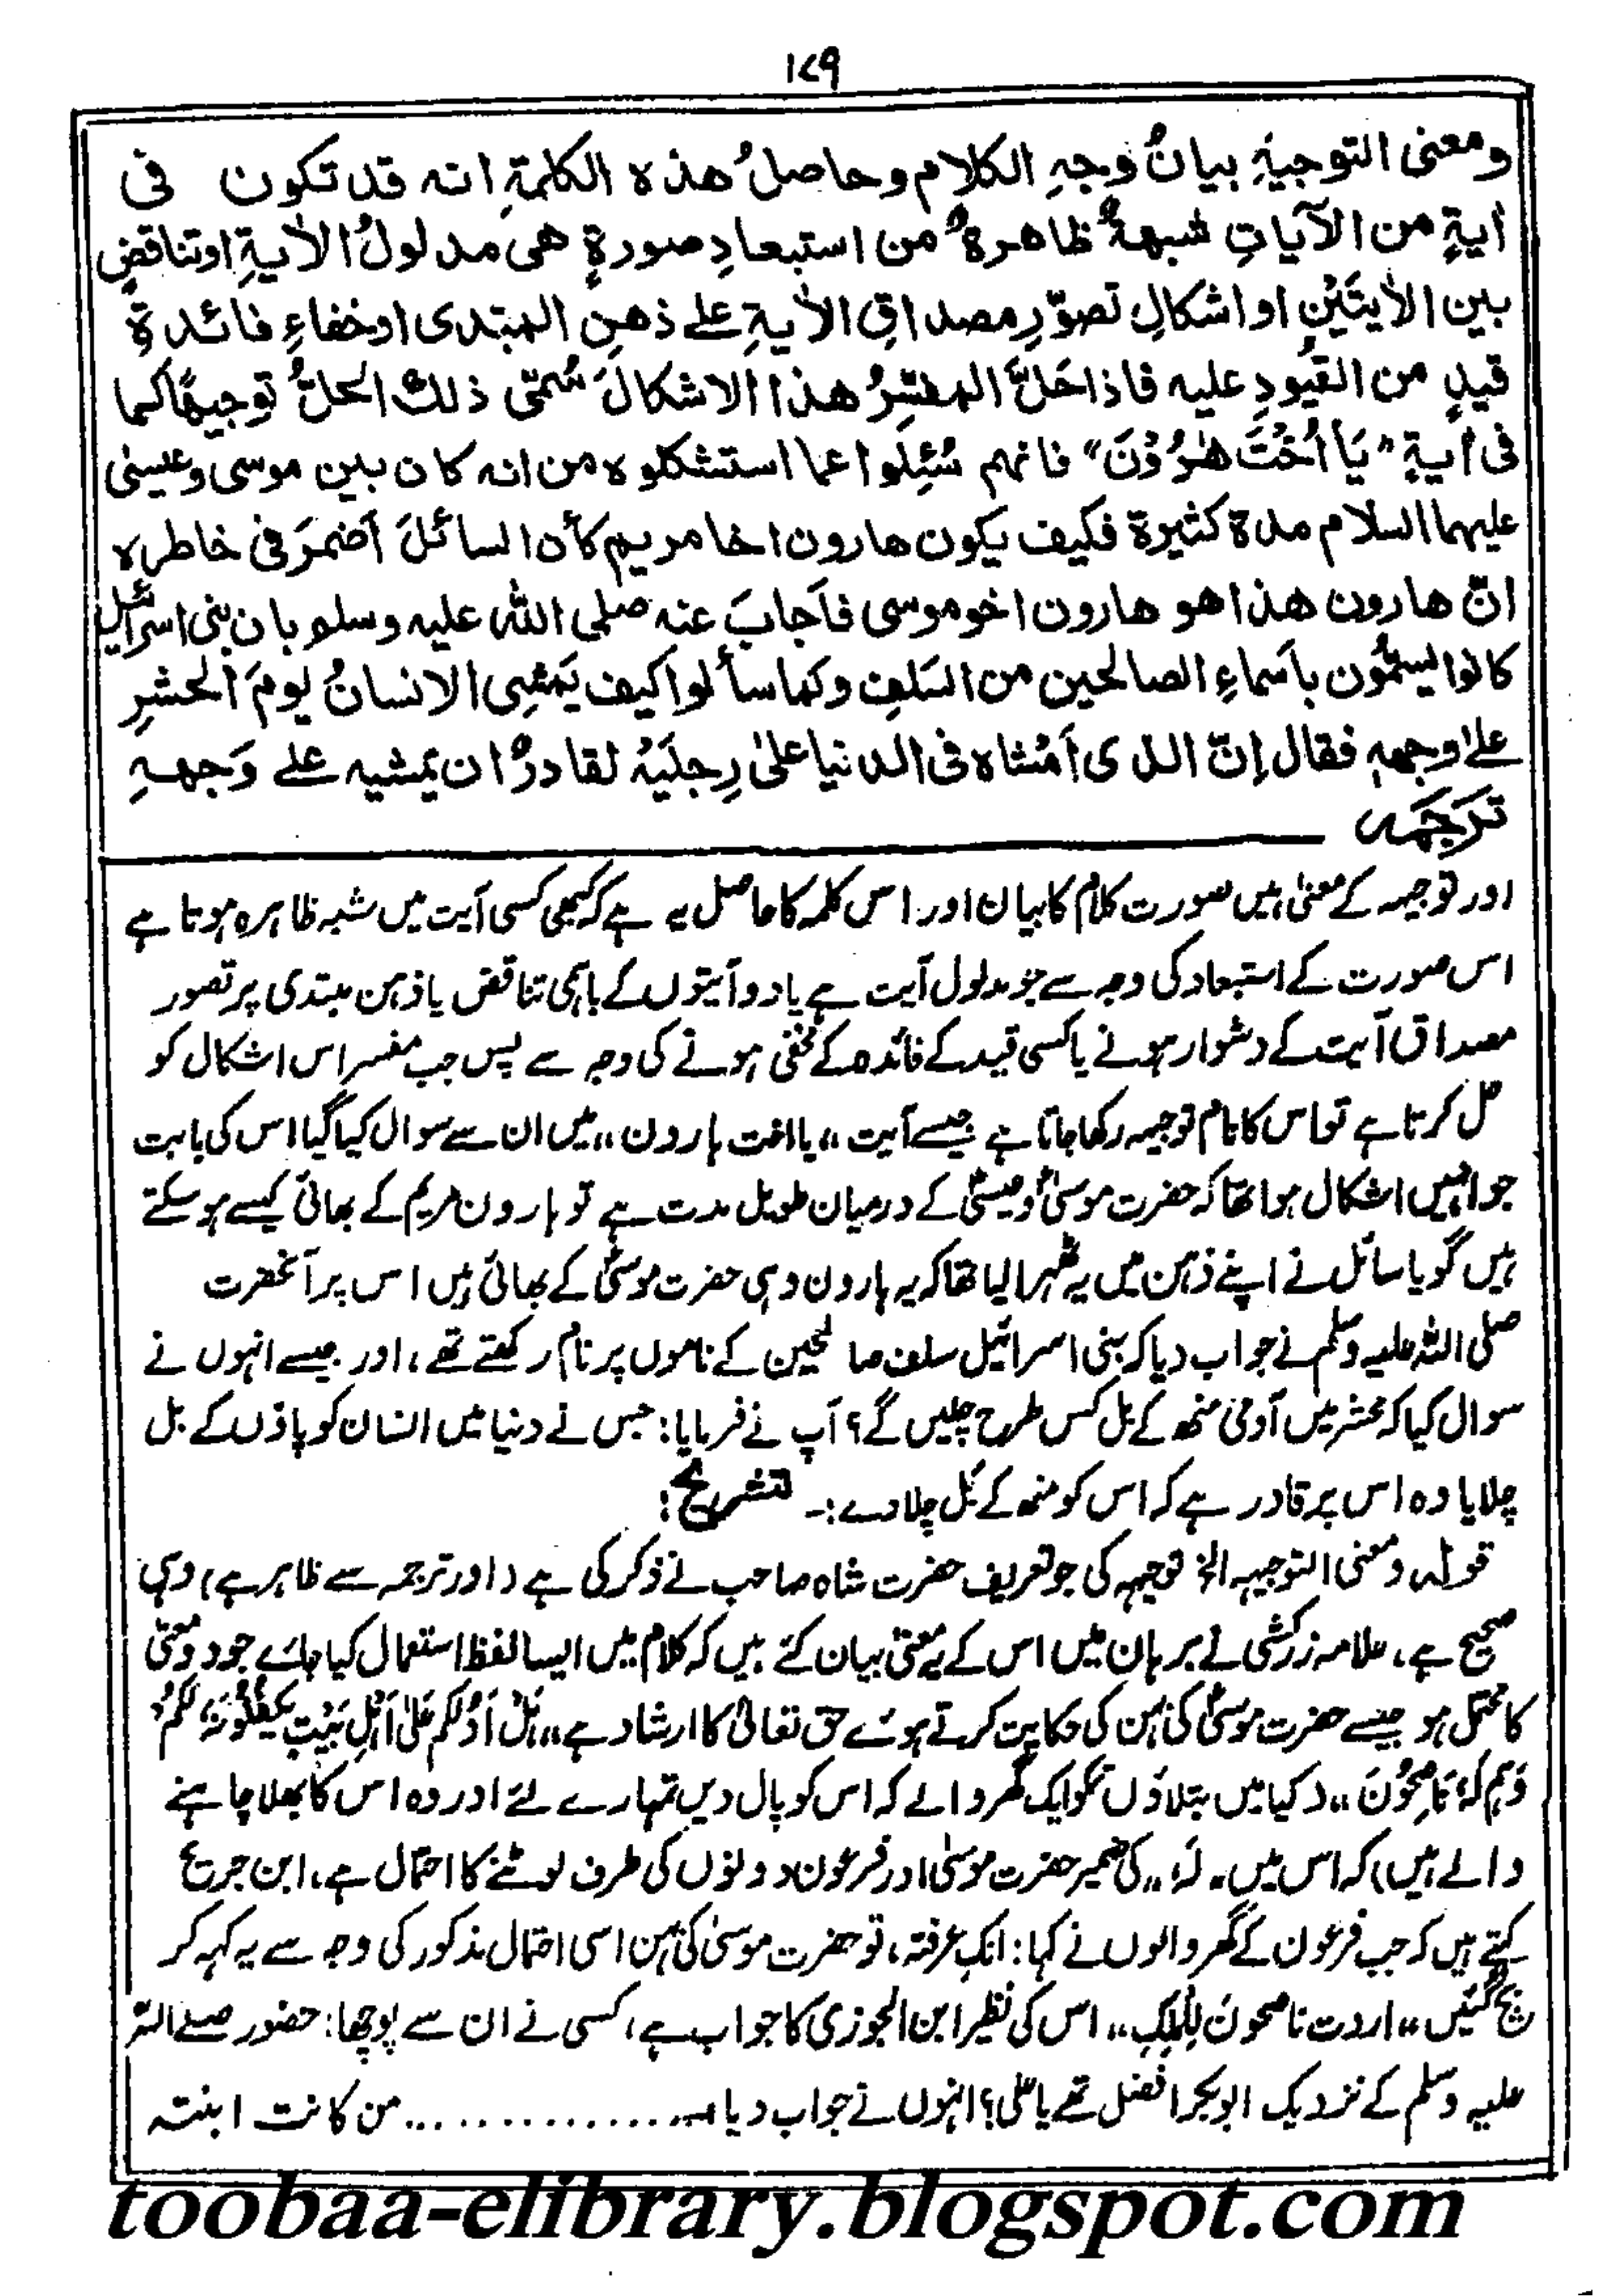 ۱۷۹
ومعنی التوجیہِ بیانُ وجہِ الکلام وحاصلُ ھذہ الکلمۃِ انہ قد تکون فی
اٰیۃٍ من الآیاتِ شبھۃٌ ظاھرۃٌ من استبعادِ صورۃٍ ھی مدلولُ الاٰیۃِ اوتناقضٍ
بین الاٰیتَیْنِ او اشکالِ تصوّرِ مصداقِ الاٰیۃِ علے ذھنِ المبتدی اوخفاءِ فائدۃِ
قیدٍ من القیُودِ علیہ فاذا حَلَّ المفسِّرُ ھذا الاشکالَ سُمّی ذلک الحلُّ توجیھًا کما
فی اٰیۃِ ”یَا اُخْتَ ھٰرُوْنَ“ فانہم سُئِلوا عما استشکلوہ من انہ کان بین موسی وعیسٰی
علیہما السلام مدۃ کثیرۃ فکیف یکون ھارون اخا مریم کأن السائلَ اَضمرَ فی خاطرہ
انّ ھارون ھذا ھو ھارون اخو موسی فاَجابَ عنہ صلی اللہ علیہ وسلم بان بنی اسرائیل
کانوا یسمُّون باَسماءِ الصالحین من السَلفِ وکما سألوا کیف یَمْشِی الانسانُ یومَ الحشرِ
علےٰ وجھہٖ فقال اِنّ الذی اَمْشاہ فی الدنیا علیٰ رِجلَیْہ لقادرٌ ان یمشیہ علے وَجھہٖ
ترَجَمَہ
اور توجیہ کے معنیٰ ہیں صورت کلام کا بیان اور اس کلمہ کا حاصل یہ ہے کہ کبھی کسی آیت میں شبہ ظاہرہ ہوتا ہے
اس صورت کے استبعاد کی وجہ سے جو مدلول آیت ہے یا دو آیتوں کے باہمی تناقض یا ذہن مبتدی پر تصور
مصداق آیت کے دشوار ہونے یا کسی قید کے فائدہ کے مخفی ہونے کی وجہ سے پس جب مفسر اس اشکال کو
حل کرتا ہے تو اس کا نام توجیہ رکھا جاتا ہے جیسے آیت ،،یا اخت ہارون،، میں ان سے سوال کیا گیا اس کی بابت
جو انہیں اشکال ہوا تھا کہ حضرت موسیٰؑ و عیسیٰؑ کے درمیان طویل مدت ہے تو ہارون مریم کے بھائی کیسے ہو سکتے
ہیں گویا سائل نے اپنے ذہن میں یہ ٹھہرا لیا تھا کہ یہ ہارون وہی حضرت موسیٰؑ کے بھائی ہیں اس پر آنحضرت
صلی اللہ علیہ وسلم نے جواب دیا کہ بنی اسرائیل سلف صالحین کے ناموں پر نام رکھتے تھے، اور جیسے انہوں نے
سوال کیا کہ محشر میں آدمی منھ کے بل کس طرح چلیں گے؟ آپ نے فرمایا: جس نے دنیا میں انسان کو پاؤں کے بل
چلایا وہ اس پر قادر ہے کہ اس کو منھ کے بَل چلا دے:۔ تشریح:
قولہ ومعنی التوجیہ الخ توجیہہ کی جو تعریف حضرت شاہ صاحب نے ذکر کی ہے (اور ترجمہ سے ظاہر ہے) وہی
صحیح ہے، علامہ زرکشی نے برہان میں اس کے یہ معنی بیان کئے ہیں کہ کلام میں ایسا لفظ استعمال کیا جائے جو دو معنی
کا محتمل ہو جیسے حضرت موسیٰؑ کی بہن کی حکایت کرتے ہوئے حق تعالیٰ کا ارشاد ہے ،،ہَلْ اَدُلُّکُمْ عَلیٰ اَہْلِ بَیْتٍ یَکْفُلُوْنَہٗ لَکُمْ
وَہُمْ لَہٗ نَاصِحُوْنَ،، (کیا میں بتلاؤں تمکو ایک گھر والے کہ اس کو پال دیں تمہارے لئے اور وہ اس کا بھلا چاہنے
والے ہیں) کہ اس میں ،،لَہٗ،، کی ضمیر حضرت موسیٰ اور فرعون دونوں کی طرف لوٹنے کا احتمال ہے، ابن جریج
کہتے ہیں کہ جب فرعون کے گھر والوں نے کہا: انکِ عرفتہ، تو حضرت موسیٰ کی بہن اسی احتمال مذکور کی وجہ سے یہ کہہ کر
بچ گئیں ،،اردت ناصحون لِلْمَلِکِ،، اس کی نظیر ابن الجوزی کا جواب ہے، کسی نے ان سے پوچھا: حضور صلے اللہ
علیہ وسلم کے نزدیک ابوبکر افضل تھے یا علی؟ انہوں نے جواب دیا ............... من کانت ابنتہ
toobaa-elibrary.blogspot.com